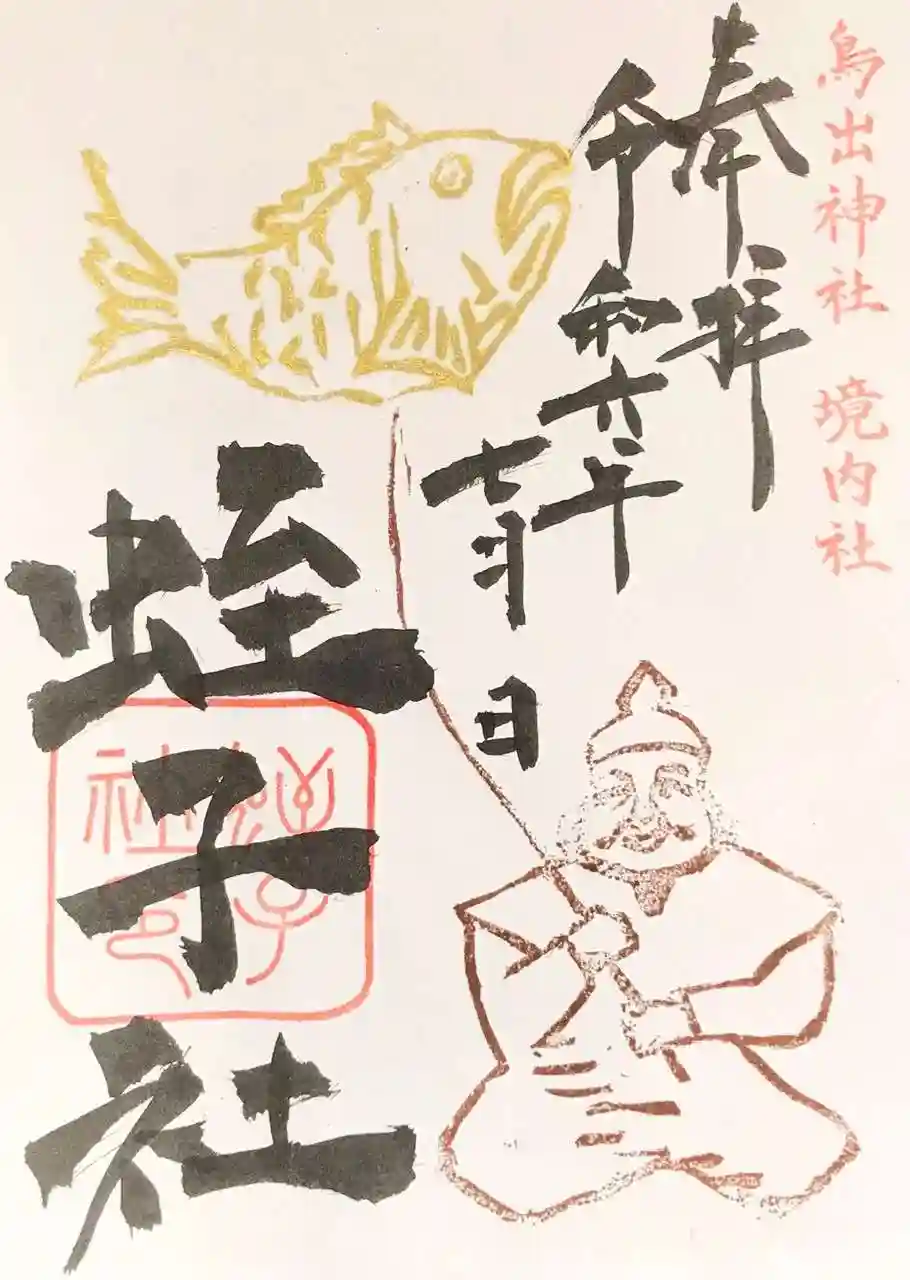 鳥出神社 境内社
奉拝
令和六年
七月 日
蛭子社
蛭子
社印